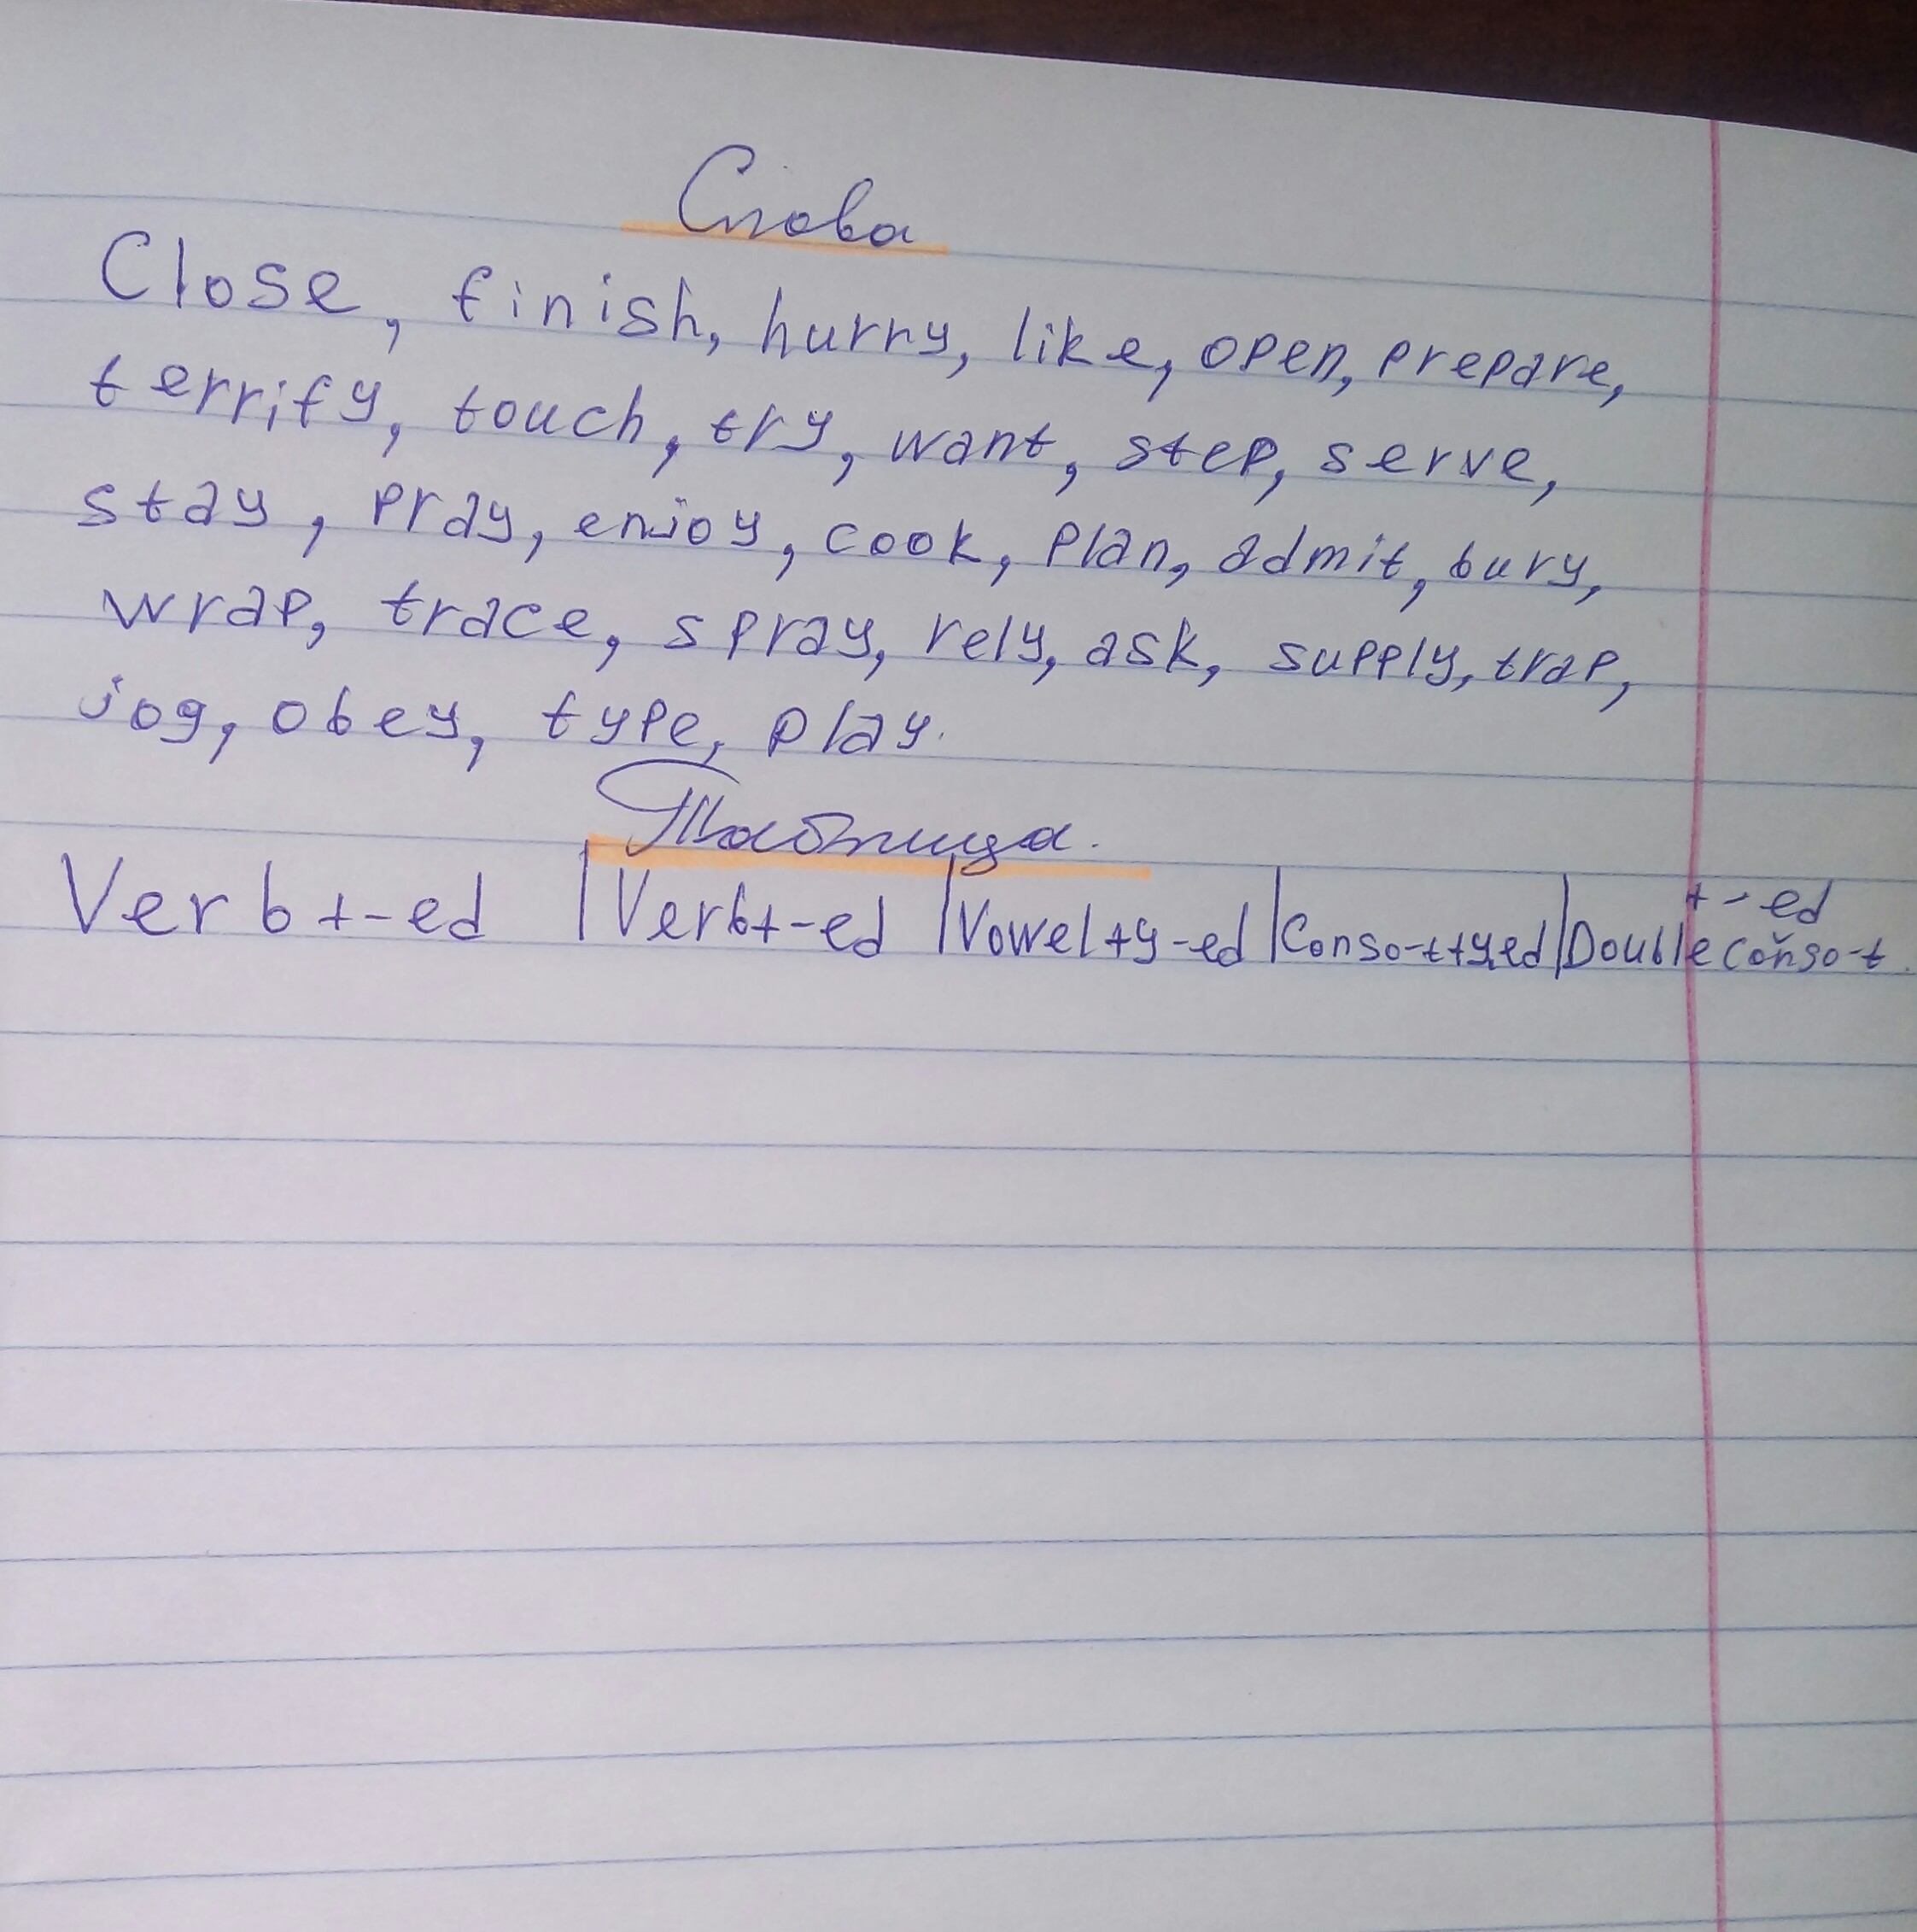 Слова
Close, finish, hurry, like, open, prepare,
terrify, touch, try, want, step, serve,
stay, pray, enjoy, cook, plan, admit, bury,
wrap, trace, spray, rely, ask, supply, trap,
jog, obey, type, play.
Таблица.
Verb+-ed | Verb+-ed | Vowel+y-ed | Conso-t+y,ed | Double conso-t +-ed